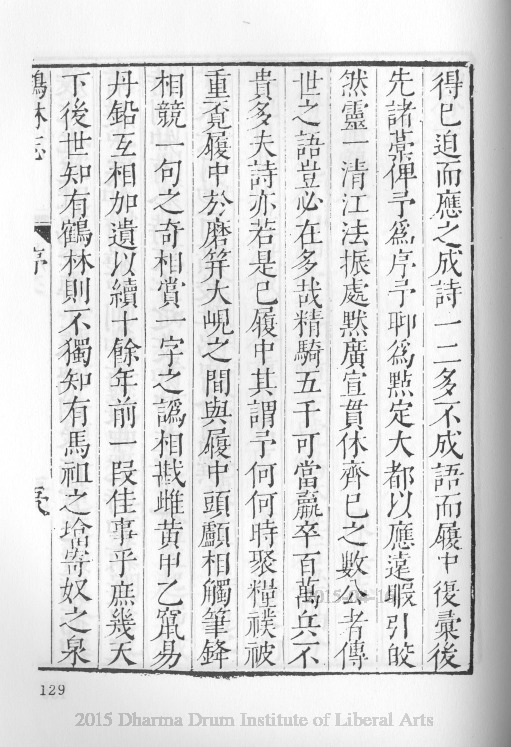 得已迫而應之成詩一二多不成語而履中復彙後
先諸藁俾予爲序予聊爲㸃定大都以應遠暇引皎
然靈一清江法振處默廣宣貫休齊已之數公者傳
世之語豈必在多哉精騎五千可當羸卒百萬兵不
貴多夫詩亦若是已履中其謂予何何時聚糧襆被
重覔履中於磨笄大峴之間與履中頭顱相觸筆鋒
相競一句之奇相賞一字之譌相戡雌黄甲乙竄易
丹鉛互相加遺以續十餘年前一段佳事乎庶幾天
下後世知有鶴林則不獨知有馬祖之塔寄奴之泉
鶴林志
序
129
2015 Dharma Drum Institute of Liberal Arts